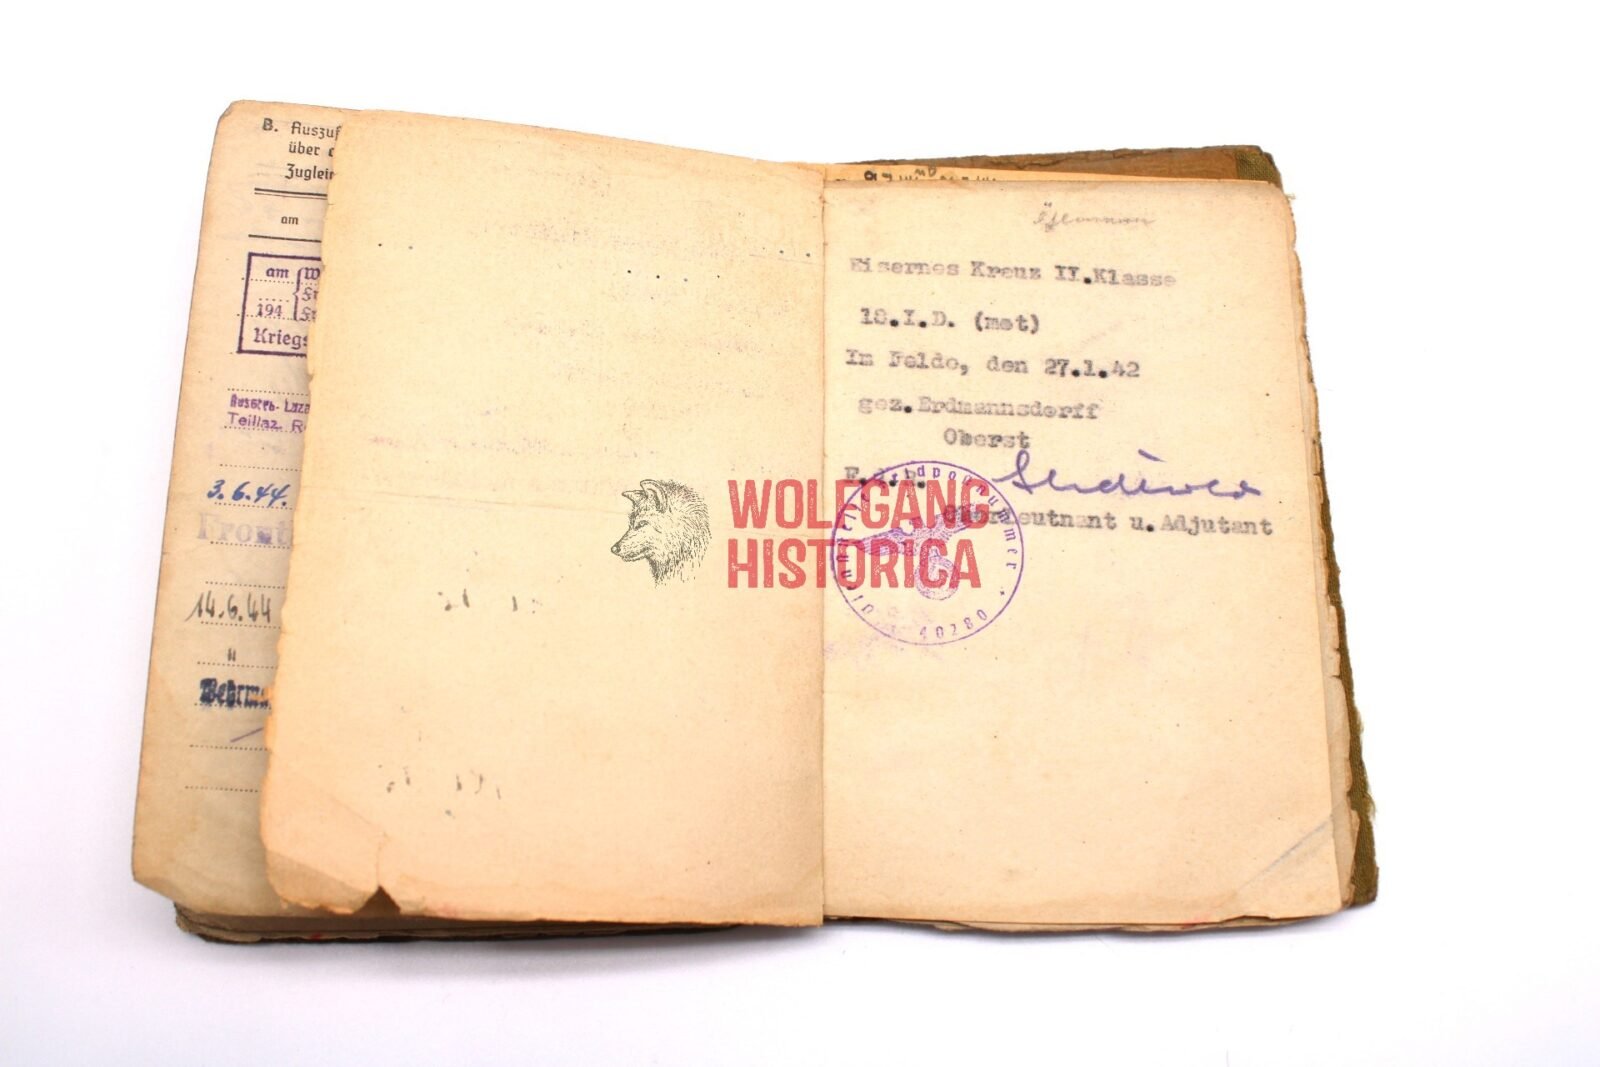 B. Auszuf
über
Zuglei
am
am
194
Kriegs
Teillaz. R
3.6.44.
Front
14.6.44
"
Wehrma
Eisernes Kreuz II.Klasse
18.I.D. (mot)
Im Felde, den 27.1.42
gez.Erdmannsdorff
Oberst
F.d.R.
Oberleutnant u. Adjutant
Feldpostnummer
40280
WOLFGANG
HISTORICA